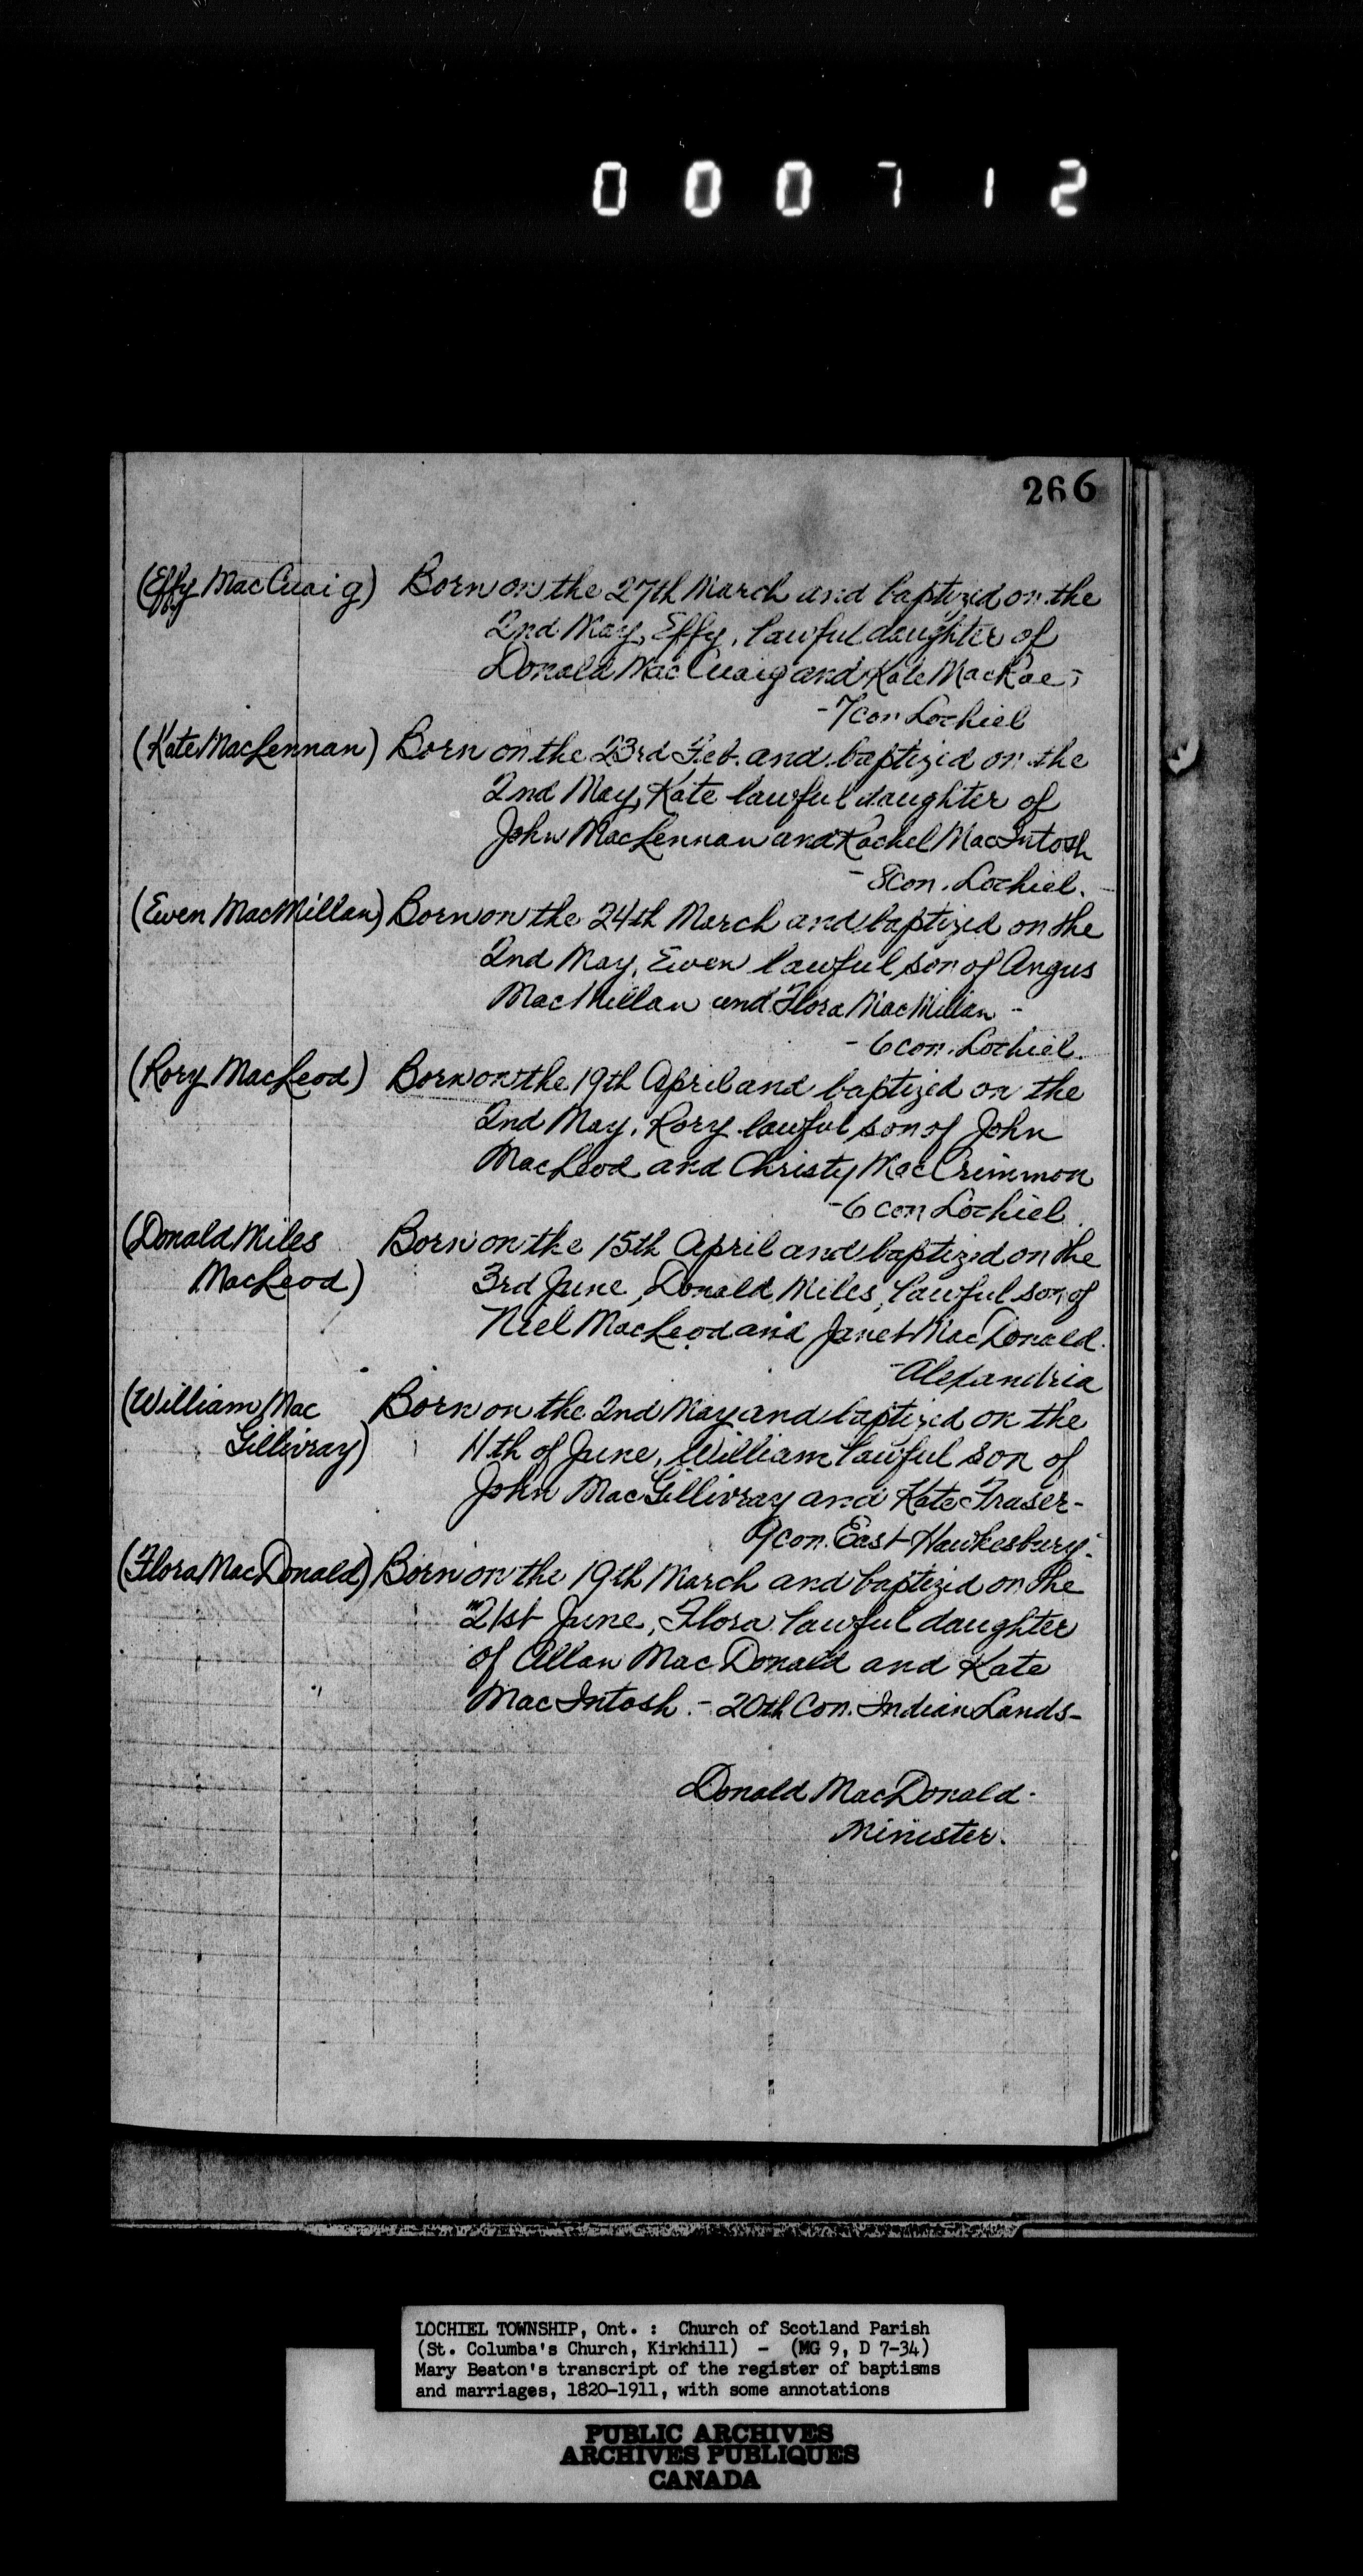 000712
266
(Effy MacCuaig) Born on the 27th March and baptized on the
2nd May, Effy, lawful daughter of
Donald MacCuaig and Kate MacRae,
- 7 con Lochiel
(Kate MacLennan) Born on the 23rd Feb. and baptized on the
2nd May, Kate lawful daughter of
John MacLennan and Rachel MacIntosh
- 8 con. Lochiel.
(Ewen MacMillan) Born on the 24th March and baptized on the
2nd May, Ewen lawful son of Angus
MacMillan and Flora MacMillan -
- 6 con. Lochiel.
(Rory MacLeod) Born on the 19th April and baptized on the
2nd May, Rory lawful son of John
MacLeod and Christy MacCrimmon
- 6 con Lochiel.
(Donald Miles Born on the 15th April and baptized on the
MacLeod) 3rd June, Donald Miles, lawful son of
Niel MacLeod and Janet MacDonald.
- Alexandria
(William Mac Born on the 2nd May and baptized on the
Gillivray) 11th of June, William lawful son of
John MacGillivray and Kate Fraser -
9 con. East Hawkesbury.
(Flora MacDonald) Born on the 19th March and baptized on the
21st June, Flora lawful daughter
of Allan MacDonald and Kate
MacIntosh. - 20th Con. Indian Lands -
Donald MacDonald.
Minister.
LOCHIEL TOWNSHIP, Ont. : Church of Scotland Parish
(St. Columba's Church, Kirkhill) - (MG 9, D 7-34)
Mary Beaton's transcript of the register of baptisms
and marriages, 1820-1911, with some annotations
PUBLIC ARCHIVES
ARCHIVES PUBLIQUES
CANADA